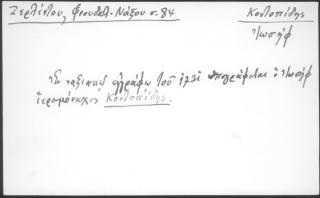 Ζερλέντου, Φεουδαλ. Νάξου σ. 84
Κοντοπίδης
Ἰωσήφ
Ἐν ναξιακῷ ἐγγράφῳ τοῦ ὑπογράφεται ὁ Ἰωσήφ
ἱερομόναχος Κοντοπίδης.